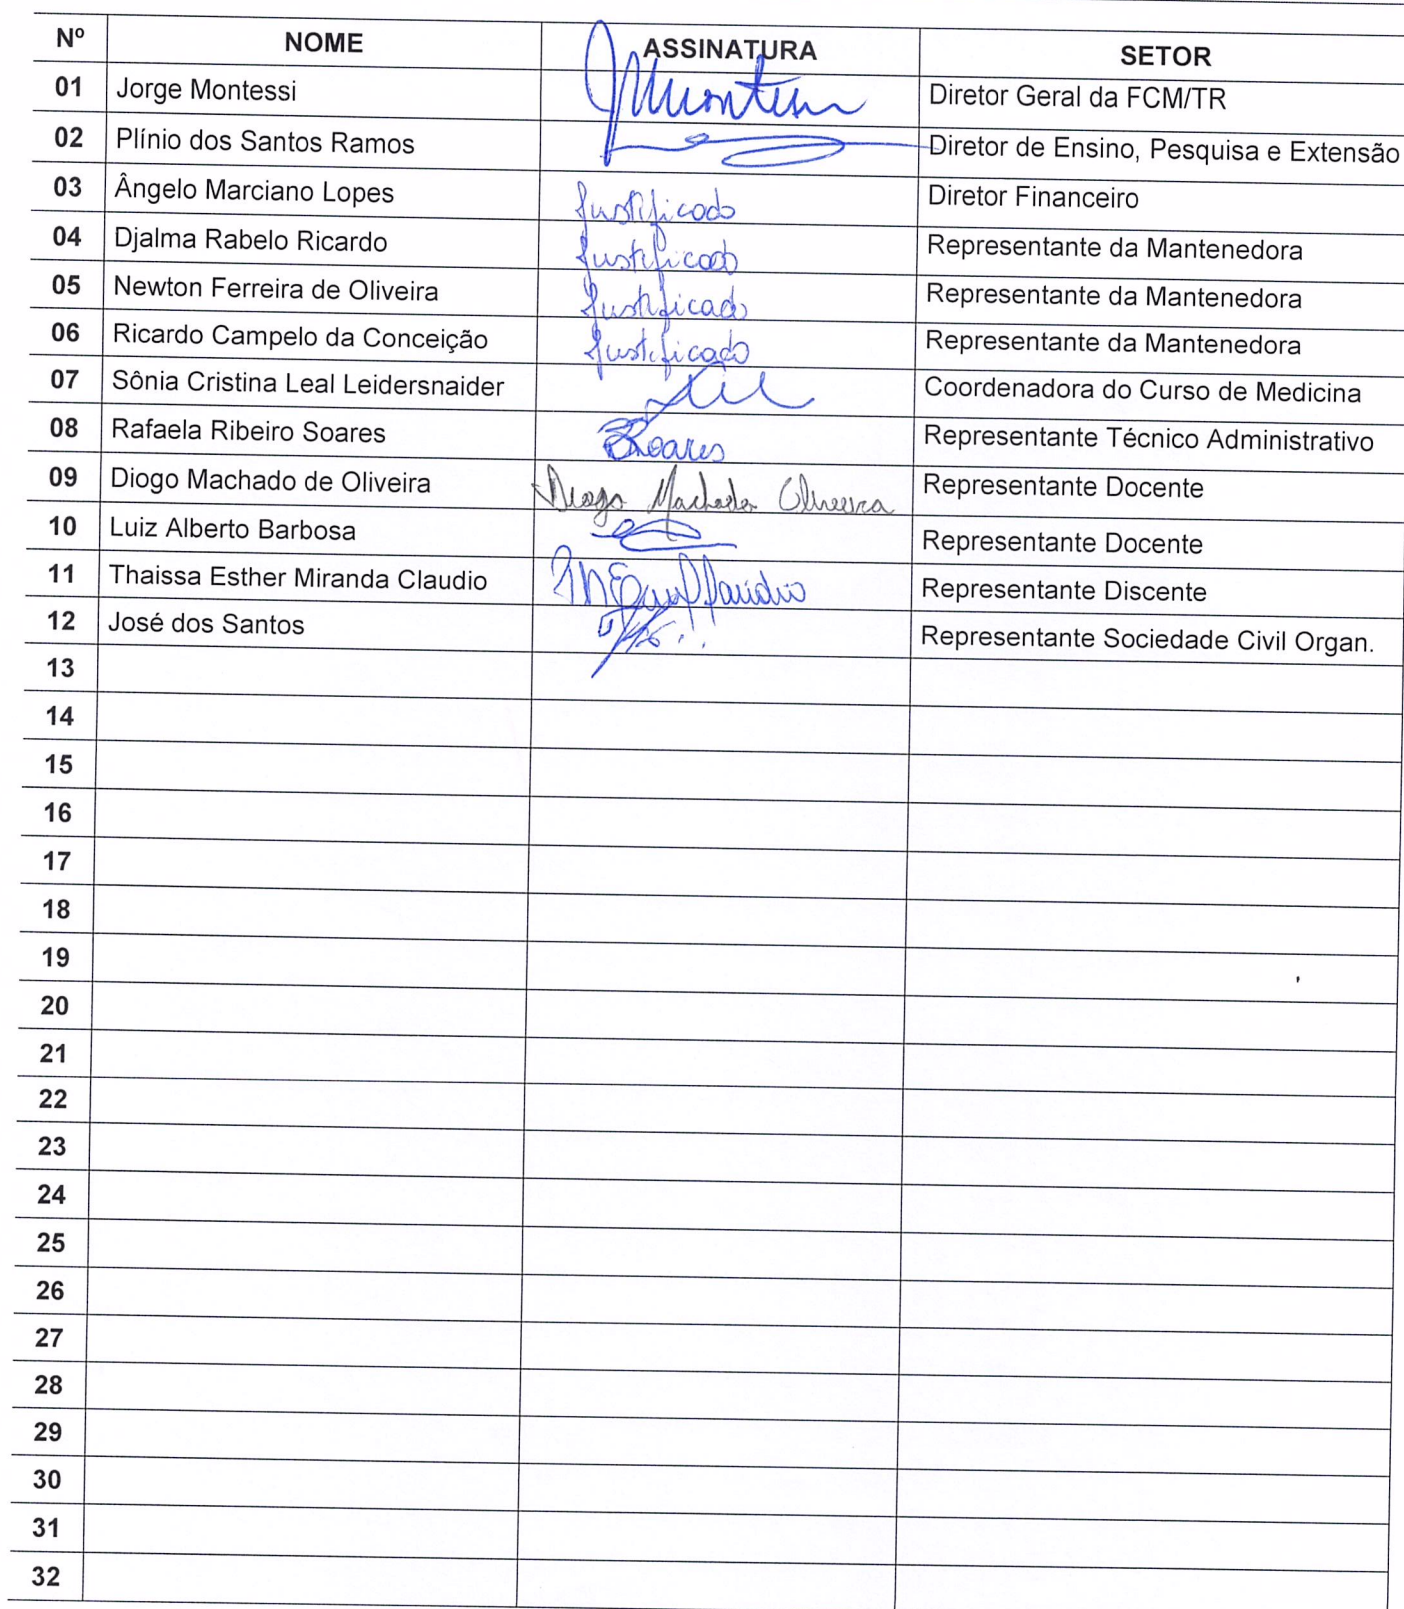 Nº NOME ASSINATURA SETOR
01 Jorge Montessi JMontessi Diretor Geral da FCM/TR
02 Plínio dos Santos Ramos Diretor de Ensino, Pesquisa e Extensão
03 Ângelo Marciano Lopes Justificado Diretor Financeiro
04 Djalma Rabelo Ricardo Justificado Representante da Mantenedora
05 Newton Ferreira de Oliveira Justificado Representante da Mantenedora
06 Ricardo Campelo da Conceição Justificado Representante da Mantenedora
07 Sônia Cristina Leal Leidersnaider Coordenadora do Curso de Medicina
08 Rafaela Ribeiro Soares RSoares Representante Técnico Administrativo
09 Diogo Machado de Oliveira Diogo Machado Oliveira Representante Docente
10 Luiz Alberto Barbosa Representante Docente
11 Thaissa Esther Miranda Claudio Representante Discente
12 José dos Santos Representante Sociedade Civil Organ.
13
14
15
16
17
18
19
20
21
22
23
24
25
26
27
28
29
30
31
32